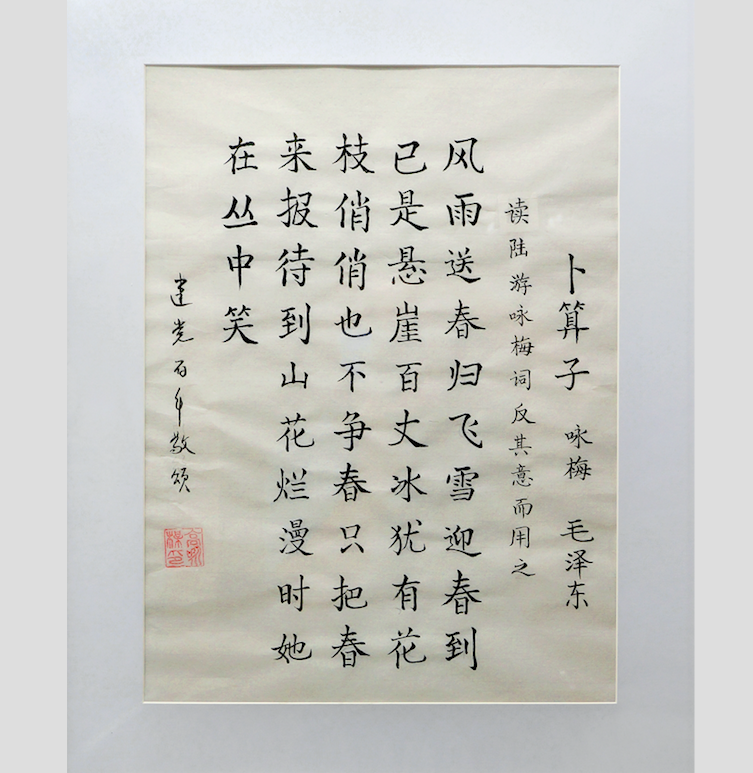 卜算子 咏梅 毛泽东
读陆游咏梅词反其意而用之
风雨送春归飞雪迎春到
已是悬崖百丈冰犹有花
枝俏俏也不争春只把春
来报待到山花烂漫时她
在丛中笑
建党百年敬颂